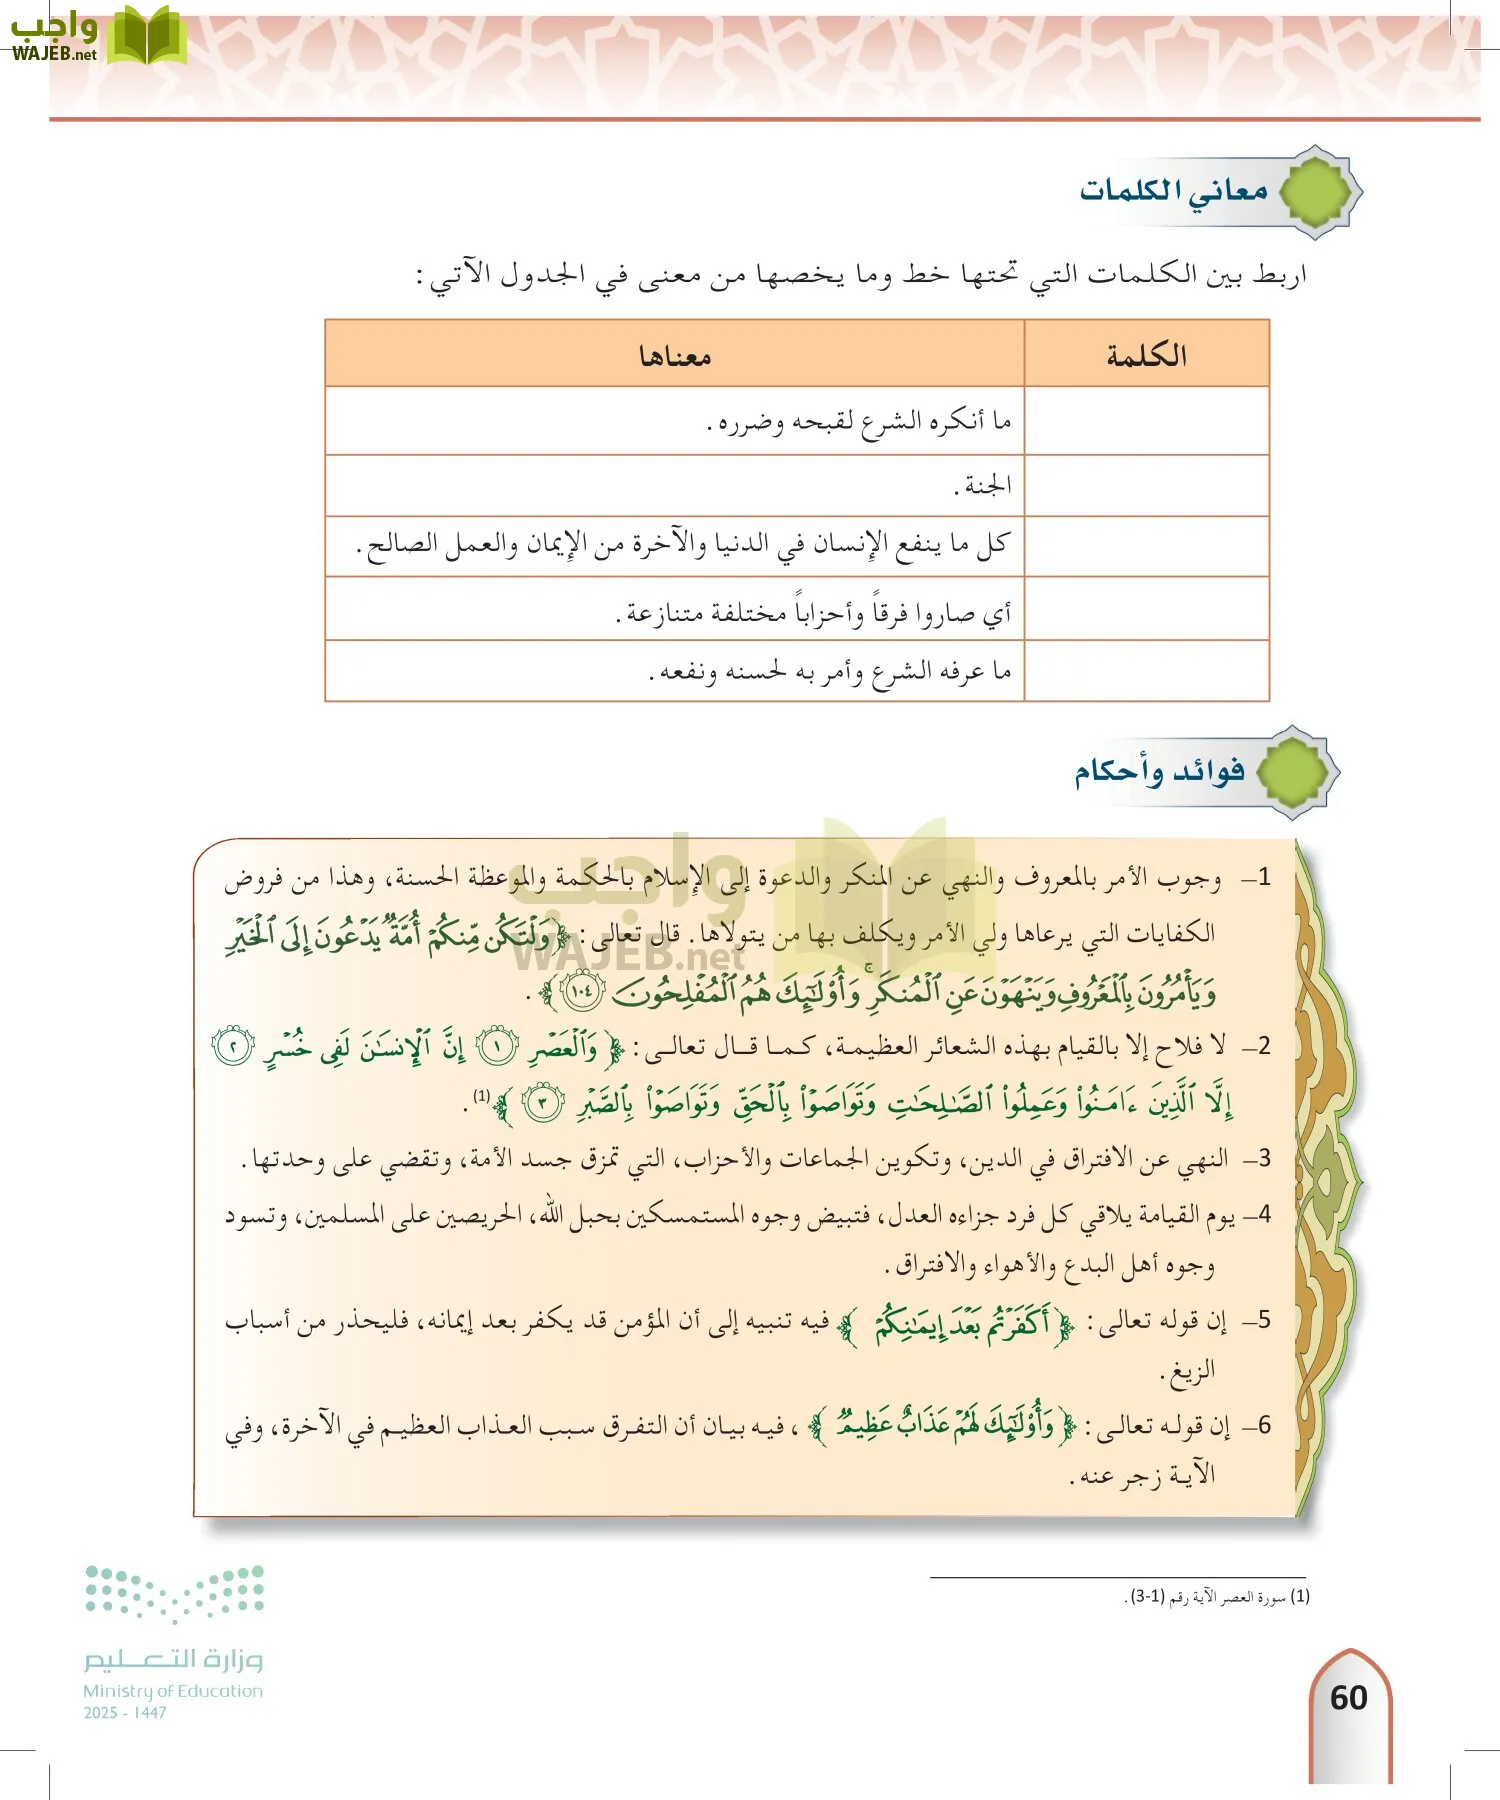 واجب
WAJEB.net
معاني الكلمات
اربط بين الكلمات التي تحتها خط وما يخصها من معنى في الجدول الآتي:
الكلمة	معناها
ما أنكره الشرع لقبحه وضرره.
الجنة.
كل ما ينفع الإنسان في الدنيا والآخرة من الإيمان والعمل الصالح.
أي صاروا فرقاً وأحزاباً مختلفة متنازعة.
ما عرفه الشرع وأمر به لحسنه ونفعه.
فوائد وأحكام
1– وجوب الأمر بالمعروف والنهي عن المنكر والدعوة إلى الإسلام بالحكمة والموعظة الحسنة، وهذا من فروض
الكفايات التي يرعاها ولي الأمر ويكلف بها من يتولاها. قال تعالى: ﴿وَلْتَكُن مِّنكُمْ أُمَّةٌ يَدْعُونَ إِلَى ٱلْخَيْرِ
وَيَأْمُرُونَ بِٱلْمَعْرُوفِ وَيَنْهَوْنَ عَنِ ٱلْمُنكَرِ ۚ وَأُو۟لَـٰٓئِكَ هُمُ ٱلْمُفْلِحُونَ ١٠٤﴾.
2– لا فلاح إلا بالقيام بهذه الشعائر العظيمة، كما قال تعالى: ﴿وَٱلْعَصْرِ ١ إِنَّ ٱلْإِنسَـٰنَ لَفِى خُسْرٍ ٢
إِلَّا ٱلَّذِينَ ءَامَنُوا۟ وَعَمِلُوا۟ ٱلصَّـٰلِحَـٰتِ وَتَوَاصَوْا۟ بِٱلْحَقِّ وَتَوَاصَوْا۟ بِٱلصَّبْرِ ٣﴾(1).
3– النهي عن الافتراق في الدين، وتكوين الجماعات والأحزاب، التي تمزق جسد الأمة، وتقضي على وحدتها.
4– يوم القيامة يلاقي كل فرد جزاءه العدل، فتبيض وجوه المستمسكين بحبل الله، الحريصين على المسلمين، وتسود
وجوه أهل البدع والأهواء والافتراق.
5– إن قوله تعالى: ﴿أَكَفَرْتُم بَعْدَ إِيمَـٰنِكُمْ﴾ فيه تنبيه إلى أن المؤمن قد يكفر بعد إيمانه، فليحذر من أسباب
الزيغ.
6– إن قوله تعالى: ﴿وَأُو۟لَـٰٓئِكَ لَهُمْ عَذَابٌ عَظِيمٌ﴾، فيه بيان أن التفرق سبب العذاب العظيم في الآخرة، وفي
الآية زجر عنه.
واجب
WAJEB.net
(1) سورة العصر الآية رقم (1-3).
وزارة التعليم
Ministry of Education
2025 - 1447
60